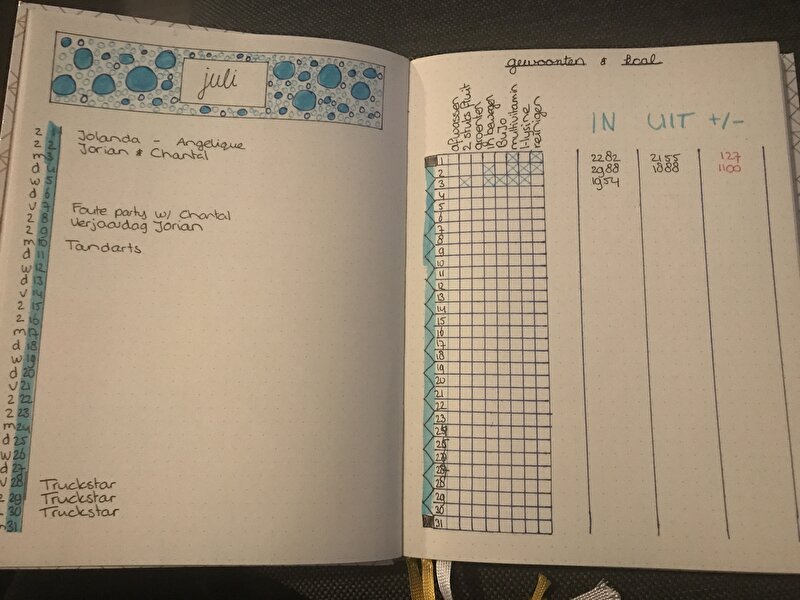 juli
z 1 Jolanda - Angelique
z 2 Jorian & Chantal
m 3
d 4
w 5
d 6
v 7
z 8 Foute party w/ Chantal
z 9 Verjaardag Jorian
m 10 Tandarts
d 11
w 12
d 13
v 14
z 15
z 16
m 17
d 18
w 19
d 20
v 21
z 22
z 23
m 24
d 25
w 26
d 27
v 28 Truckstar
z 29 Truckstar
z 30 Truckstar
m 31
gewoonten & kcal
afwassen
2 stuks fruit
groenten
1h bewegen
BuJo
multivitamin
l-lysine
reinigen
IN UIT +/-
1 2282 2155 127
2 2988 1888 1100
3 1954
4
5
6
7
8
9
10
11
12
13
14
15
16
17
18
19
20
21
22
23
24
25
26
27
28
29
30
31